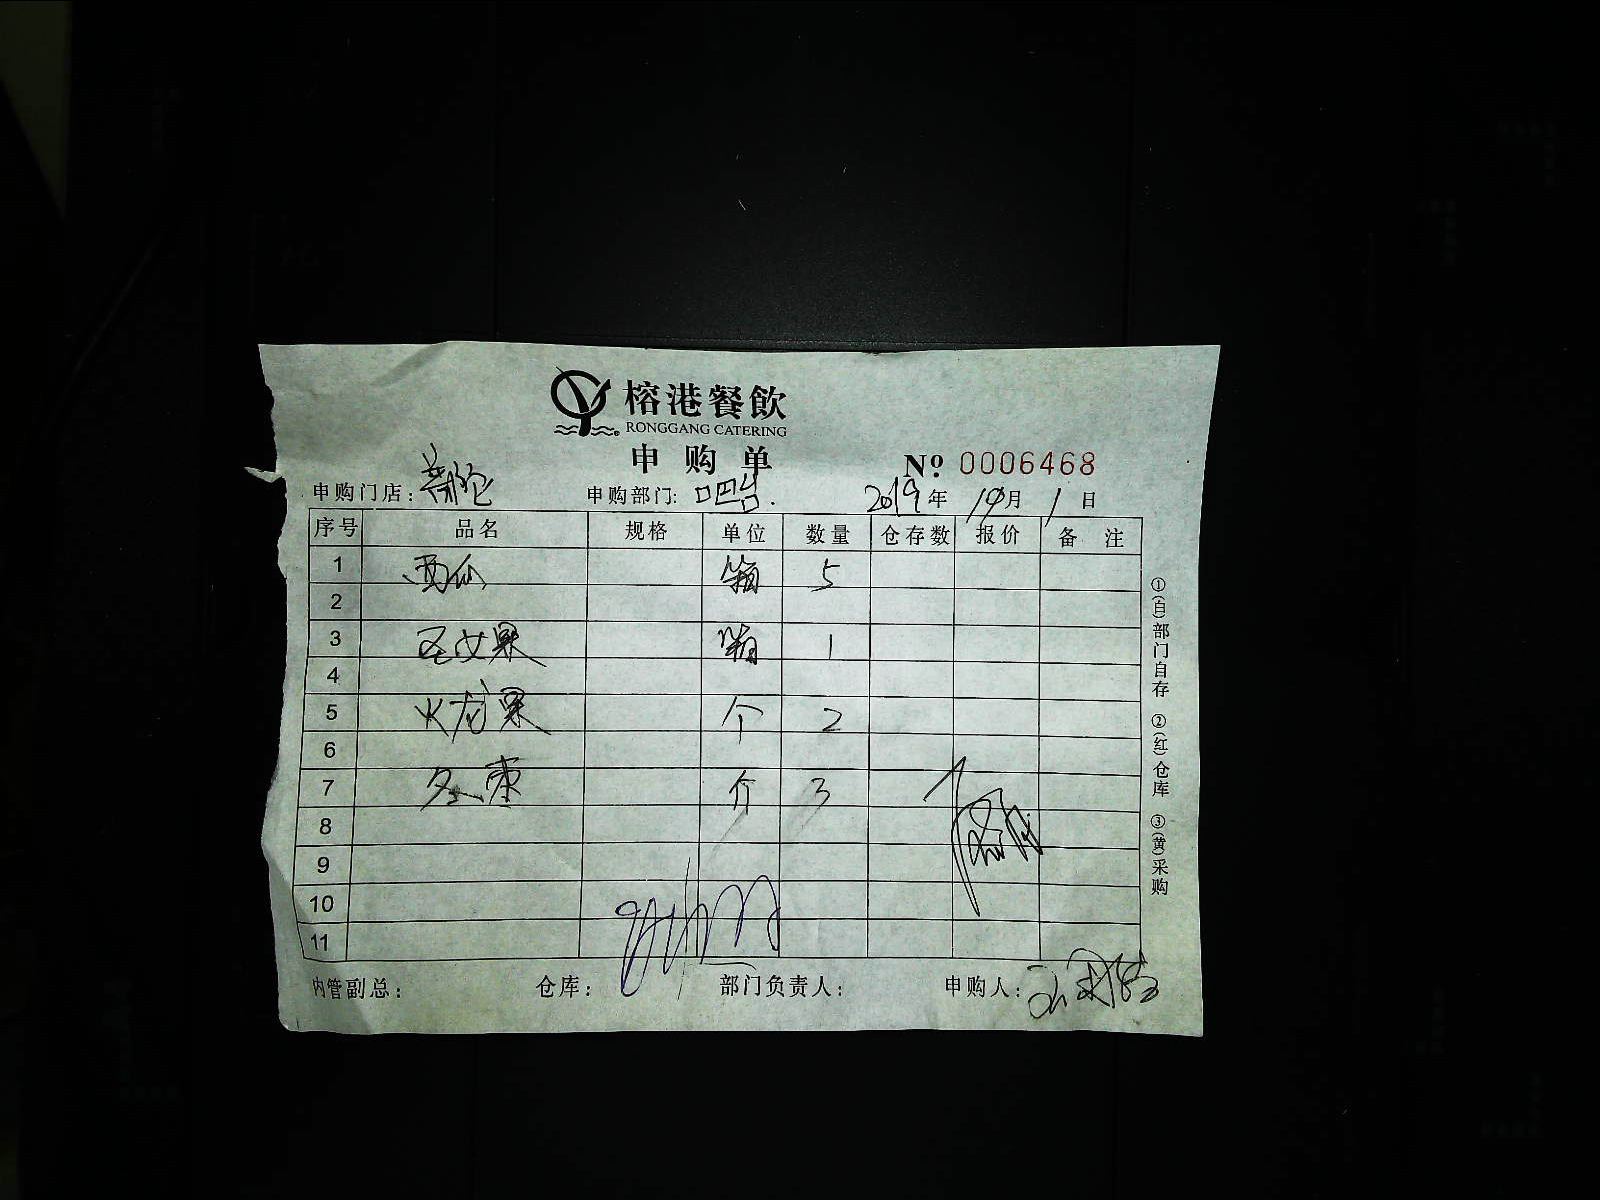 榕港餐飲
RONGGANG CATERING
申购单
№ 0006468
申购门店： 申购部门: 吧台. 2019年 10月 1日
序号 品名 规格 单位 数量 仓存数 报价 备注
1 西瓜 箱 5
2
3 圣女果 箱 1
4
5 火龙果 个 2
6
7 冬枣 斤 3
8
9
10
11
内管副总： 仓库： 部门负责人： 申购人：
①(白)部门自存 ②(红)仓库 ③(黄)采购